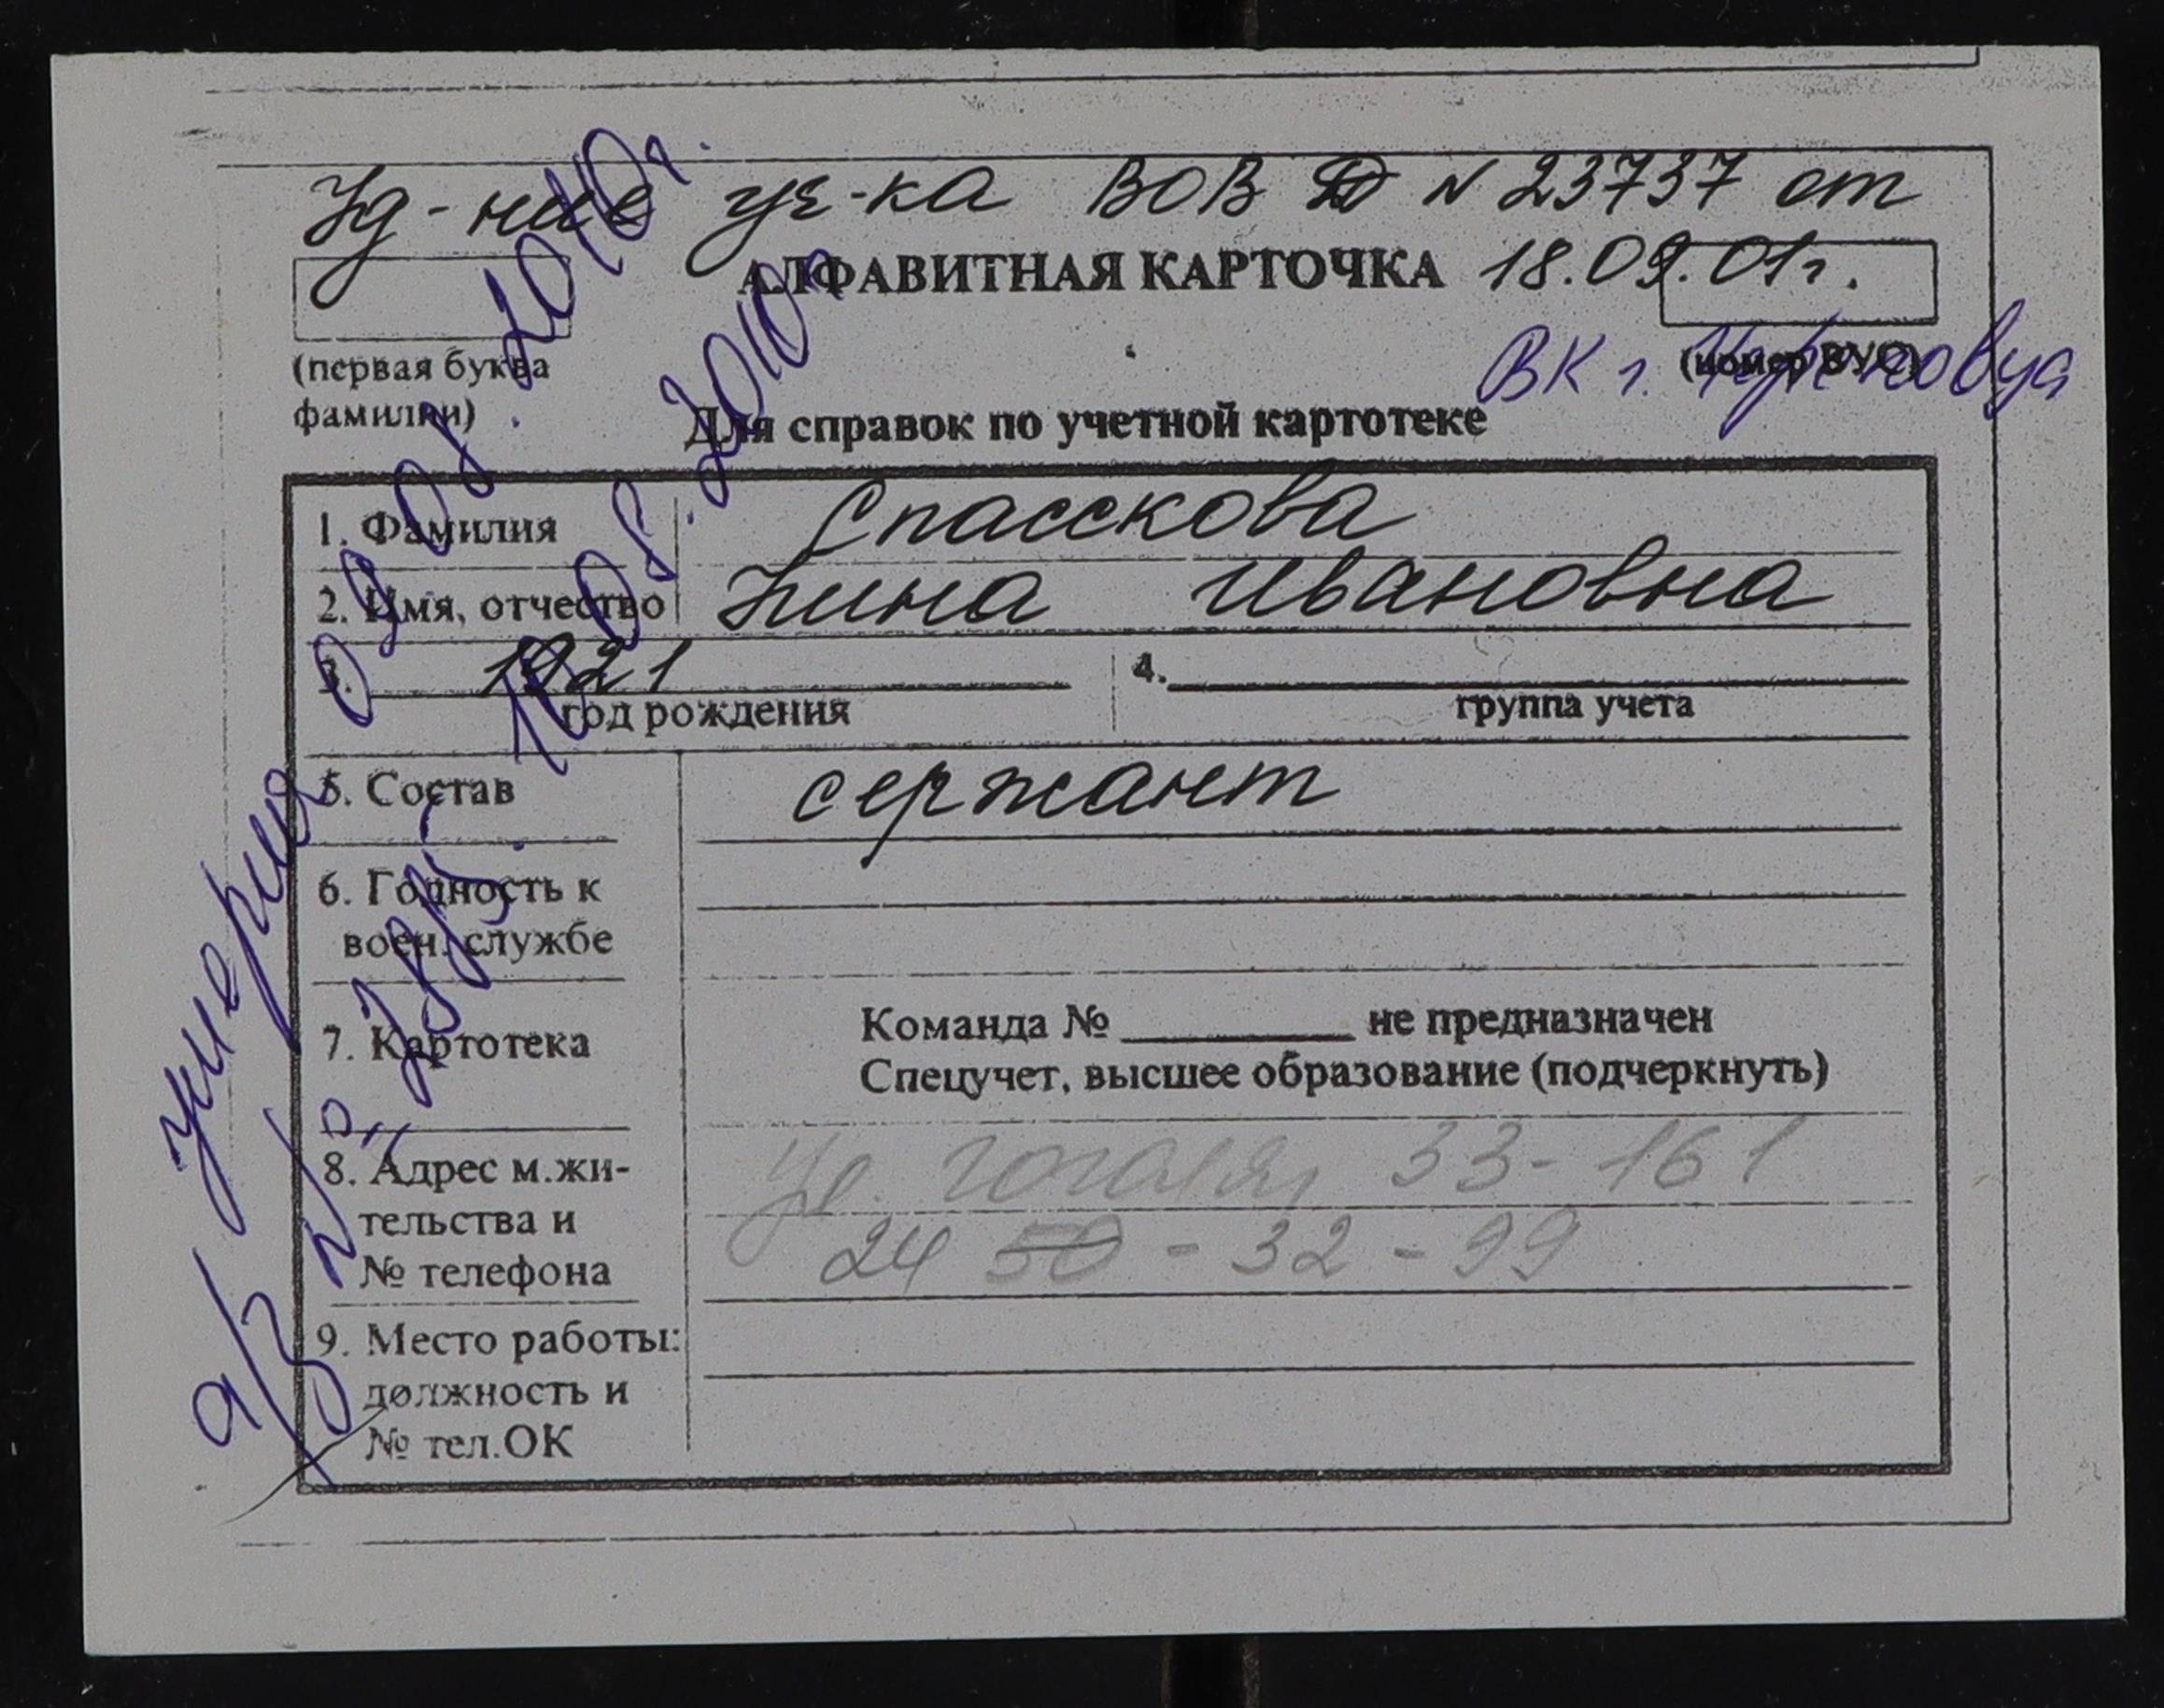 Уд-ние уч-ка ВОВ Д N 23737 от
АЛФАВИТНАЯ КАРТОЧКА 18.09.01г.
ВК г. Череповца
(первая буква
фамилии)
(номер ВУС)
Для справок по учетной картотеке
1. Фамилия Спасскова
2. Имя, отчество Нина Ивановна
3. 1921 4.
год рождения группа учета
5. Состав сержант
6. Годность к
воен. службе
7. Картотека Команда № не предназначен
Спецучет, высшее образование (подчеркнуть)
8. Адрес м.жи-
тельства и
№ телефона
ул. Гоголя 33-161
24 50-32-99
9. Место работы:
должность и
№ тел.ОК
умерла
2010г.
2010г.